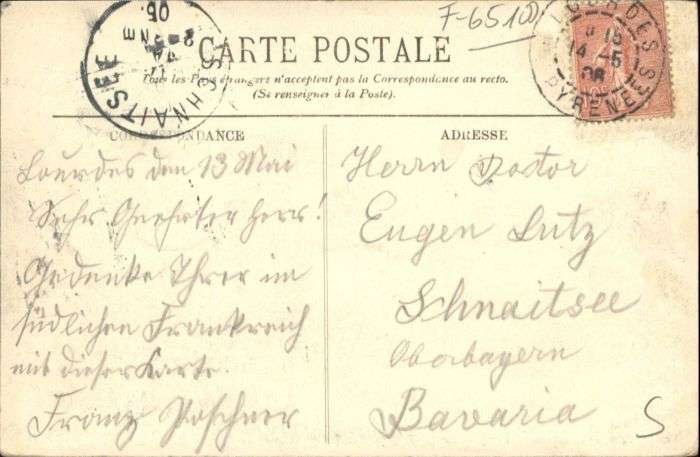 F-6510
CARTE POSTALE
Tous les Pays étrangers n'acceptent pas la Correspondance au recto.
(Se renseigner à la Poste).
LOURDES
14 -5
PYRENEES
SCHNAITSEE
CORRESPONDANCE
Lourdes den 13 Mai
Sehr Geehrter Herr!
Gedenke Ihrer im
südlichen Frankreich
mit dieser Karte.
Franz Poschner
ADRESSE
Herrn Doktor
Eugen Lutz
Schnaitsee
Oberbayern
Bavaria
S